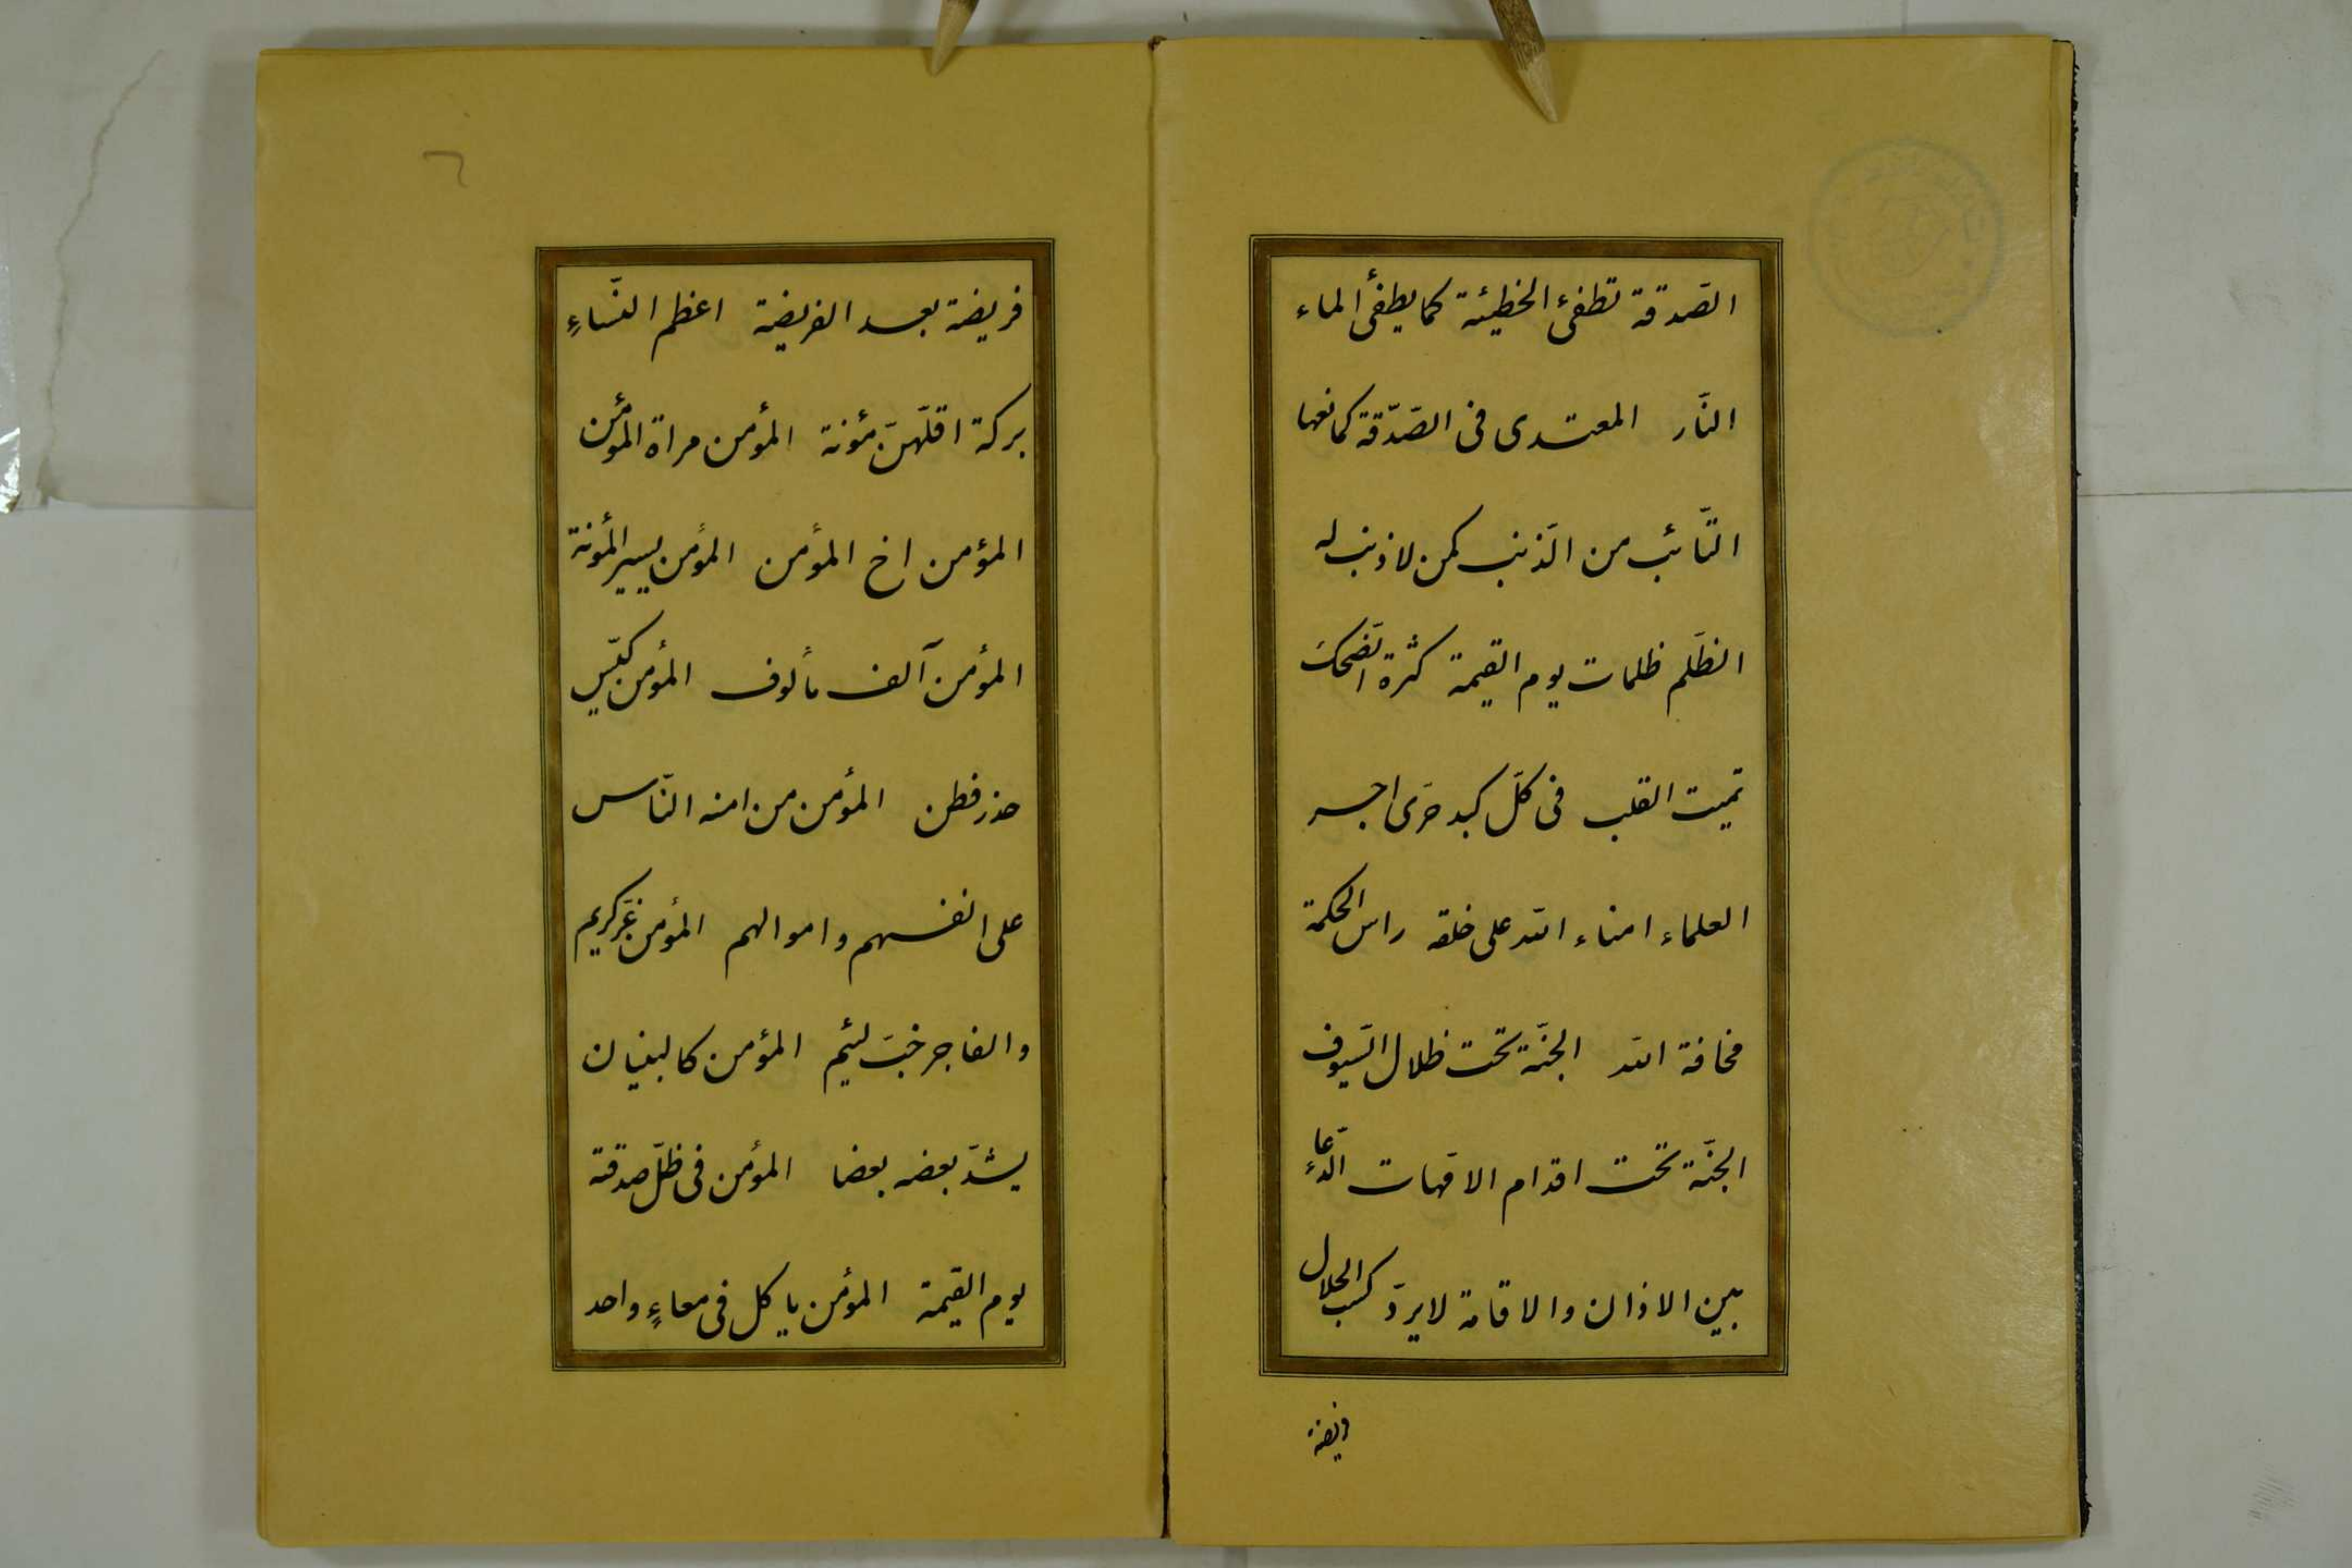 الصّدقة تطفئ الخطيئة كما يطفئ الماء
النّار المعتدى فى الصّدّقة كمانعها
التّائب من الذّنب كمن لا ذنب له
الظّلم ظلمات يوم القيمة كثرة الضّحك
تميت القلب فى كلّ كبد حرّى اجر
العلماء امناء الله على خلقه راس الحكمة
مخافة الله الجنّة تحت ظلال السّيوف
الجنّة تحت اقدام الامّهات الدّعاء
بين الاذان والاقامة لا يردّ كسب الحلال
فريضة
فريضة بعد الفريضة اعظم النّساءِ
بركة اقلّهنّ مئونة المؤمن مراة المؤمن
المؤمن اخ المؤمن المؤمن يسير المؤنة
المؤمن آلف مألوف المؤمن كيّس
حذر فطن المؤمن من امنه النّاس
على انفسهم واموالهم المؤمن غرّ كريم
والفاجر خبّ لئيم المؤمن كالبنيان
يشدّ بعضه بعضا المؤمن فى ظلّ صدقته
يوم القيمة المؤمن ياكل فى معاءٍ واحد
٦